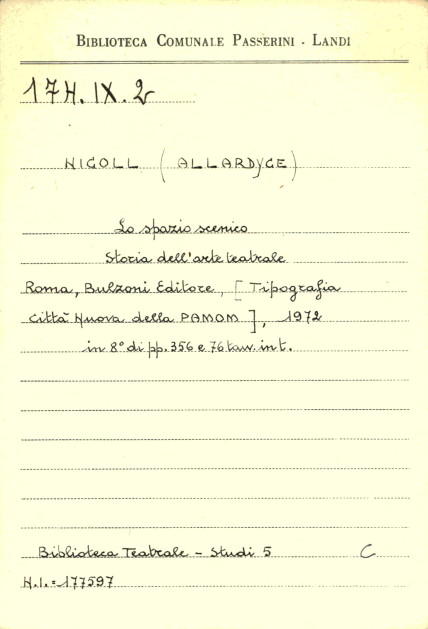 BIBLIOTECA COMUNALE PASSERINI - LANDI
17H.IX.2
NICOLL (ALLARDYCE)
Lo spazio scenico
Storia dell'arte teatrale
Roma, Bulzoni Editore, [Tipografia
Città Nuova della PAMOM], 1972
in 8° di pp. 356 e 76 tav. int.
Biblioteca Teatrale - Studi 5 C
N.I. = 177597